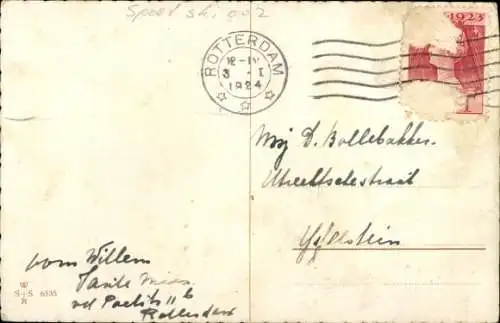 Spoor st. 002
ROTTERDAM
12-IV
3 - I
1924
1923
1
Mej D. Bollebakker.
Utrechtschestraat
IJsselstein
vom Willem
Tante
vd
Rotterdam
W
S+S 6535
R